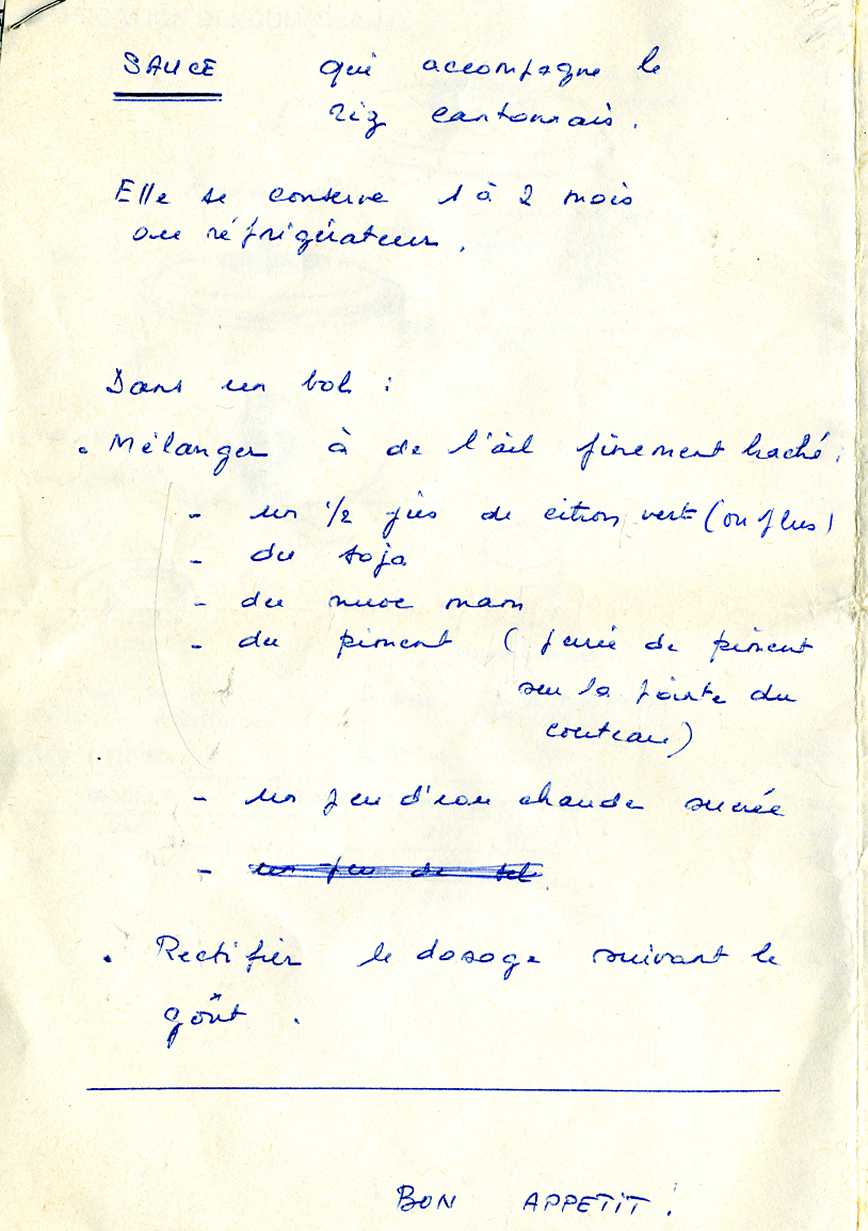 SAUCE qui accompagne le
riz cantonnais.
Elle se conserve 1 à 2 mois
au réfrigérateur.
Dans un bol :
. Mélanger à de l'ail finement haché :
- un 1/2 jus de citron vert (ou plus)
- du soja
- du nuoc mam
- du piment (purée de piment
sur la pointe du
couteau)
- un peu d'eau chaude sucrée
- un peu de sel
. Rectifier le dosage suivant le
goût.
BON APPETIT !